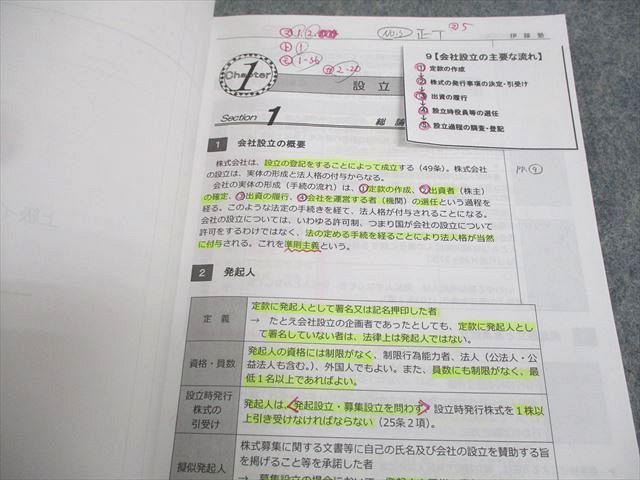 伊藤塾
9【会社設立の主要な流れ】
① 定款の作成
② 株式の発行事項の決定・引受け
③ 出資の履行
④ 設立時役員等の選任
⑤ 設立過程の調査・登記
Chapter 1
設立
Section 1
総論
1 会社設立の概要
株式会社は、設立の登記をすることによって成立する（49条）。株式会社
の設立は、実体の形成と法人格の付与からなる。
会社の実体の形成（手続の流れ）は、①定款の作成、②出資者（株主）
の確定、③出資の履行、④会社を運営する者（機関）の選任という過程を
経る。このような法定の手続きを経て、法人格が付与されることになる。
会社の設立については、いわゆる許可制、つまり国が会社の設立について
許可をするわけではなく、法の定める手続を経ることにより法人格が当然
に付与される。これを準則主義という。
2 発起人
定義
定款に発起人として署名又は記名押印した者
→ たとえ会社設立の企画者であったとしても、定款に発起人とし
て署名していない者は、法律上は発起人ではない。
資格・員数
発起人の資格には制限がなく、制限行為能力者、法人（公法人・公
益法人も含む。）、外国人でもよい。また、員数にも制限がなく、最
低1名以上であればよい。
設立時発行
株式の
引受け
発起人は、発起設立・募集設立を問わず、設立時発行株式を1株以
上引き受けなければならない（25条2項）。
擬似発起人
株式募集に関する文書等に自己の氏名及び会社の設立を賛助する旨
を掲げること等を承諾した者